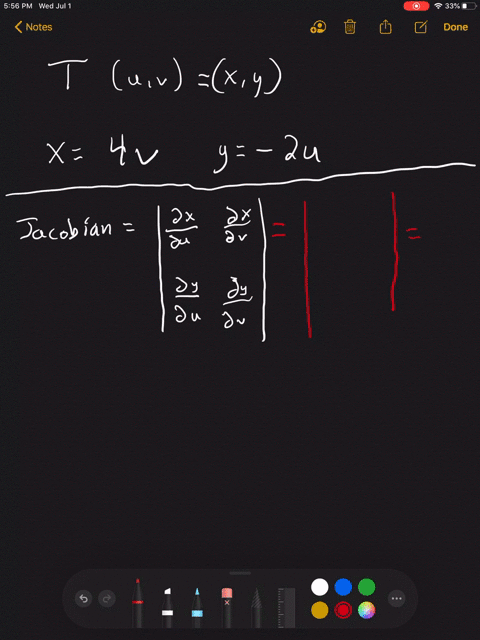 5:56 PM Wed Jul 1 33%
Notes Done
T (u,v) = (x,y)
x = 4v y = -2u
Jacobian = | ∂x/∂u ∂x/∂v | = | | =
| ∂y/∂u ∂y/∂v |